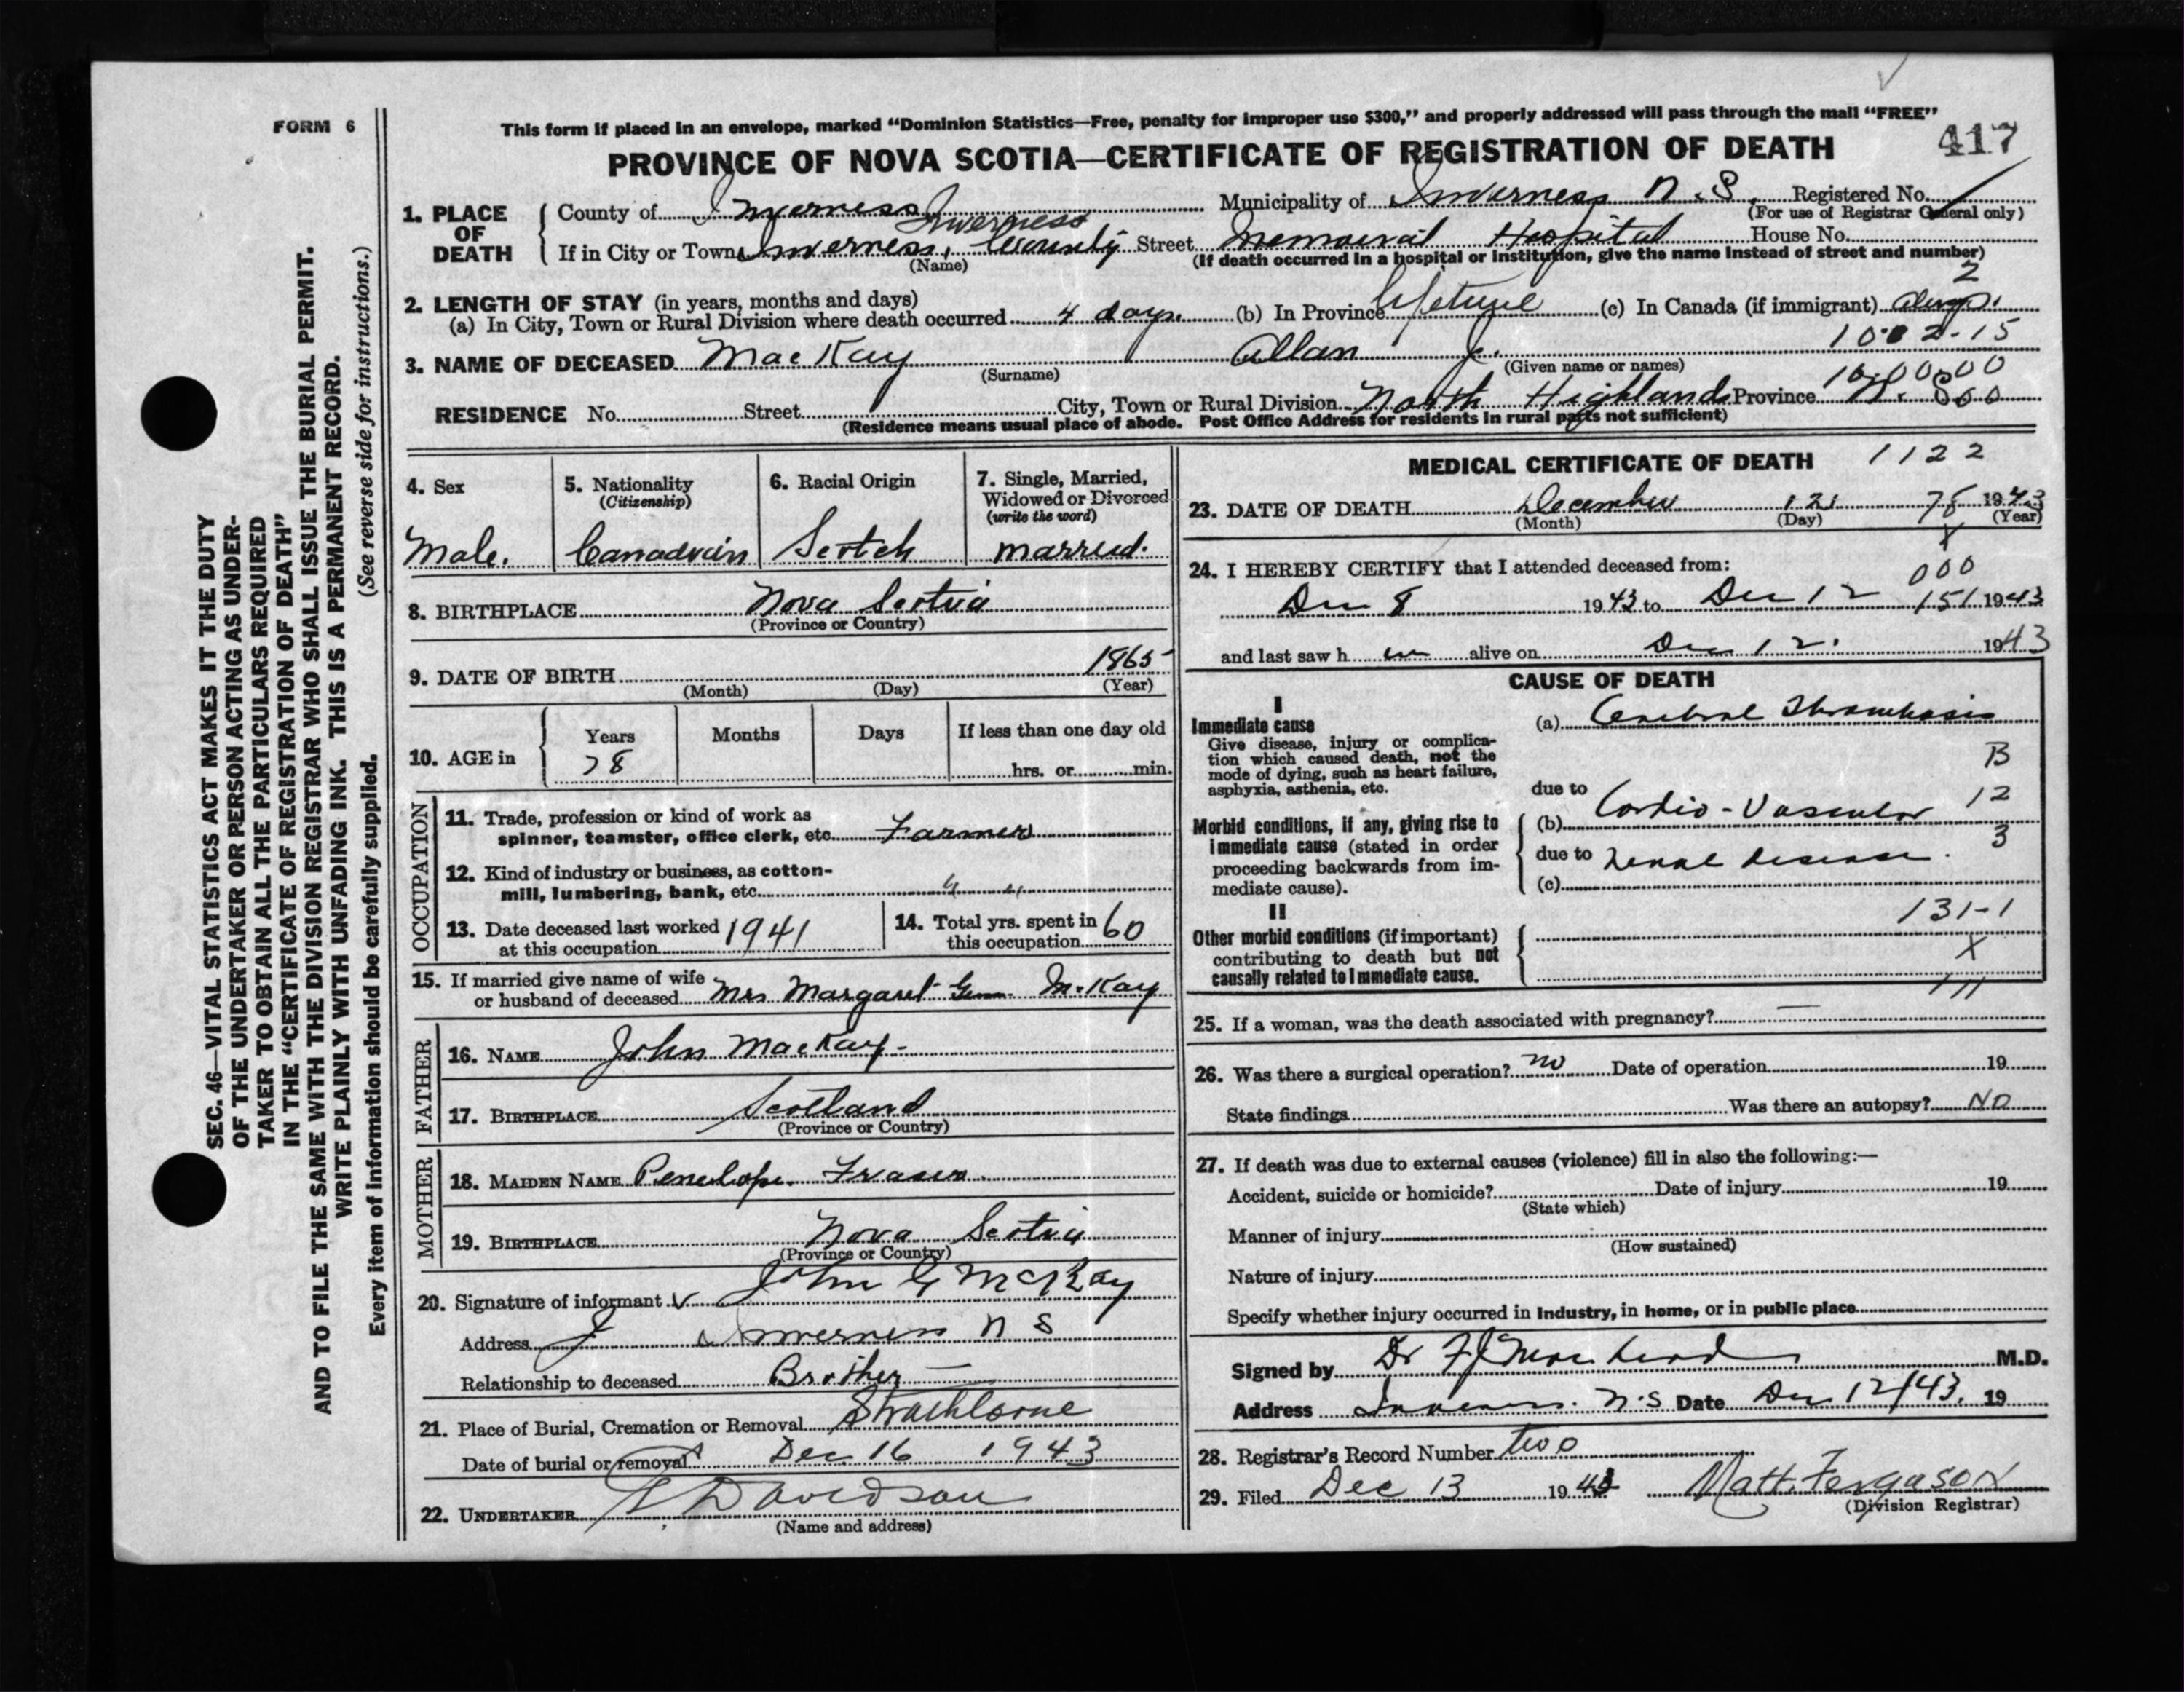 FORM 6
This form if placed in an envelope, marked "Dominion Statistics—Free, penalty for improper use $300," and properly addressed will pass through the mail "FREE"
PROVINCE OF NOVA SCOTIA—CERTIFICATE OF REGISTRATION OF DEATH 417
1. PLACE OF DEATH
County of Inverness Municipality of Inverness N.S. Registered No.
(For use of Registrar General only)
If in City or Town Inverness, Inverness County Street Memorial Hospital House No.
(Name) (If death occurred in a hospital or institution, give the name instead of street and number)
2. LENGTH OF STAY (in years, months and days) 2
(a) In City, Town or Rural Division where death occurred 4 days. (b) In Province lifetime (c) In Canada (if immigrant)
1002-15
3. NAME OF DECEASED MacKay Allan J.
(Surname) (Given name or names)
RESIDENCE No. Street City, Town or Rural Division North Highlands Province N. S.
(Residence means usual place of abode. Post Office Address for residents in rural parts not sufficient)
4. Sex
Male.
5. Nationality
(Citizenship)
Canadian
6. Racial Origin
Scotch
7. Single, Married,
Widowed or Divorced
(write the word)
married.
8. BIRTHPLACE Nova Scotia
(Province or Country)
9. DATE OF BIRTH 1865
(Month) (Day) (Year)
10. AGE in
Years Months Days If less than one day old
78 hrs. or min.
OCCUPATION
11. Trade, profession or kind of work as
spinner, teamster, office clerk, etc. Farmer
12. Kind of industry or business, as cotton-
mill, lumbering, bank, etc. " "
13. Date deceased last worked
at this occupation 1941
14. Total yrs. spent in
this occupation 60
15. If married give name of wife
or husband of deceased Mrs Margaret McKay
FATHER
16. NAME John MacKay
17. BIRTHPLACE Scotland
(Province or Country)
MOTHER
18. MAIDEN NAME Penelope Fraser
19. BIRTHPLACE Nova Scotia
(Province or Country)
20. Signature of informant John G McKay
Address Inverness N S
Relationship to deceased Brother
21. Place of Burial, Cremation or Removal Strathlorne
Date of burial or removal Dec 16 1943
22. UNDERTAKER Davidson
(Name and address)
MEDICAL CERTIFICATE OF DEATH 1122
23. DATE OF DEATH December 12 78 1943
(Month) (Day) (Year)
X
24. I HEREBY CERTIFY that I attended deceased from: 000
Dec 8 1943 to Dec 12 151 1943
and last saw h im alive on Dec 12. 1943
CAUSE OF DEATH
I
Immediate cause
Give disease, injury or complica-
tion which caused death, not the
mode of dying, such as heart failure,
asphyxia, asthenia, etc.
(a) Cerebral Thrombosis
B
due to
12
Morbid conditions, if any, giving rise to
immediate cause (stated in order
proceeding backwards from im-
mediate cause).
(b) Cardio-Vascular
3
due to renal disease.
(c)
131-1
II
Other morbid conditions (if important)
contributing to death but not
causally related to immediate cause.
X
111
25. If a woman, was the death associated with pregnancy? —
26. Was there a surgical operation? no Date of operation 19
State findings Was there an autopsy? No
27. If death was due to external causes (violence) fill in also the following:—
Accident, suicide or homicide? Date of injury 19
(State which)
Manner of injury
(How sustained)
Nature of injury
Specify whether injury occurred in industry, in home, or in public place
Signed by Dr M.D.
Address N.S Date Dec 12/43, 19
28. Registrar's Record Number two
29. Filed Dec 13 1943 Matt. Ferguson
(Division Registrar)
SEC. 46—VITAL STATISTICS ACT MAKES IT THE DUTY
OF THE UNDERTAKER OR PERSON ACTING AS UNDER-
TAKER TO OBTAIN ALL THE PARTICULARS REQUIRED
IN THE "CERTIFICATE OF REGISTRATION OF DEATH"
AND TO FILE THE SAME WITH THE DIVISION REGISTRAR WHO SHALL ISSUE THE BURIAL PERMIT.
WRITE PLAINLY WITH UNFADING INK. THIS IS A PERMANENT RECORD.
Every item of information should be carefully supplied. (See reverse side for instructions.)